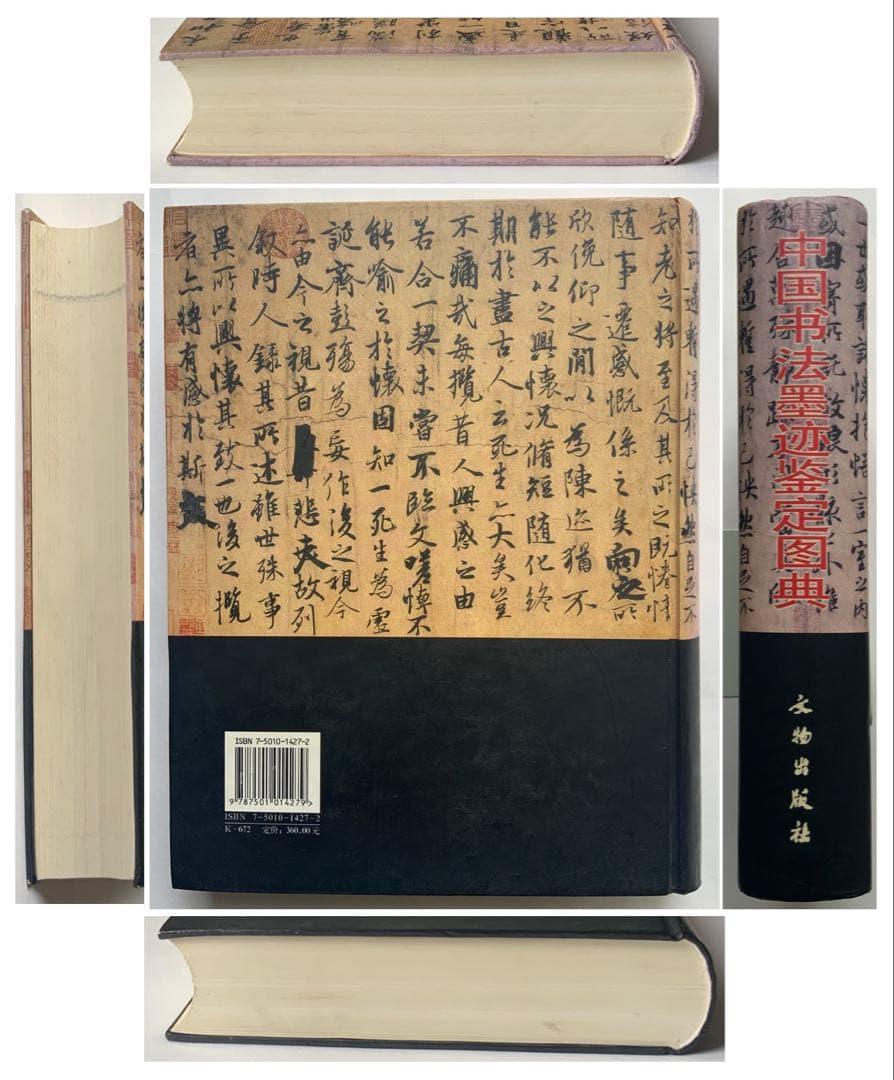 於所遇暫得於己快然自足不
知老之將至及其所之既惓情
隨事遷感慨係之矣向之所
欣俛仰之閒以為陳迹猶不
能不以之興懷況脩短隨化終
期於盡古人云死生亦大矣豈
不痛哉每攬昔人興感之由
若合一契未嘗不臨文嗟悼不
能喻之於懷固知一死生為虛
誕齊彭殤為妄作後之視今
亦由今之視昔悲夫故列
敘時人錄其所述雖世殊事
異所以興懷其致一也後之攬
者亦將有感於斯文
ISBN 7-5010-1427-2
9 787501 014279 >
ISBN 7-5010-1427-2
K·672 定价：360.00元
中国书法墨迹鉴定图典
文物出版社